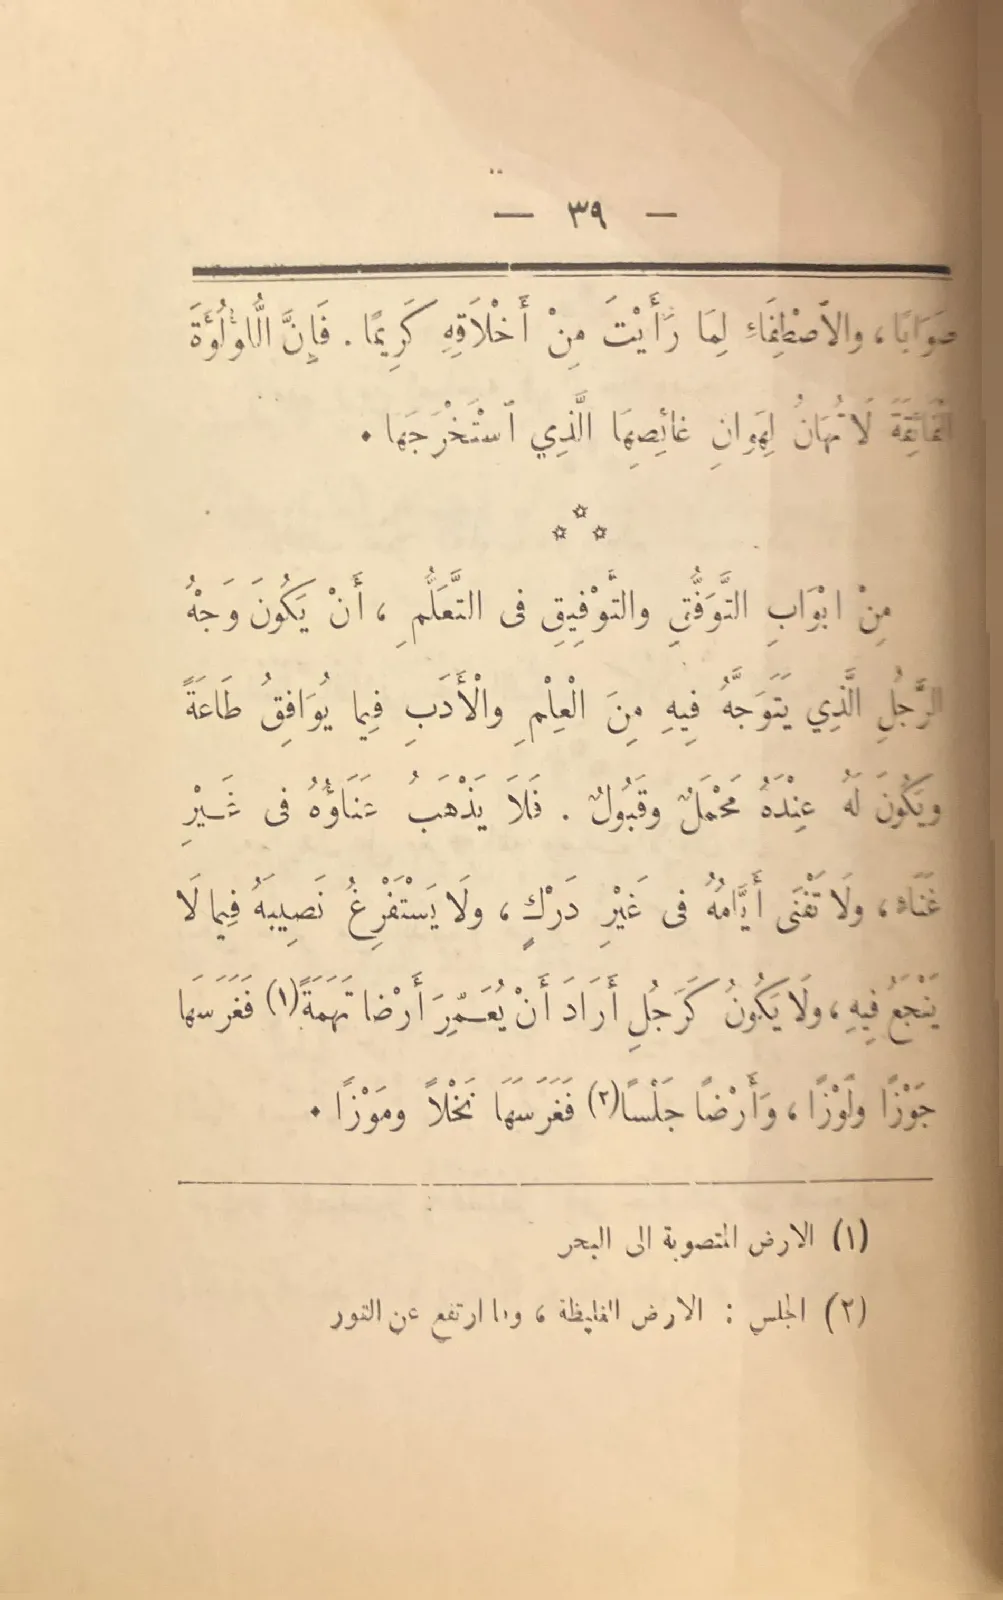 — ٣٩ —
صَوَابًا ، والاَصْطِفَاءِ لِمَا رَأَيْتَ مِنْ أَخْلَاقِهِ كَرِيمًا . فَإِنَّ الُّلؤْلُؤَةَ
الْفَائِقَةَ لَا تُهَانُ لِهَوانِ غائِصِهَا الَّذِي ٱسْتَخْرَجَهَا .
***
مِنْ ابْوَابِ التَّوَفُّقِ والتَّوْفِيقِ فى التَّعَلُّمِ ، أَنْ يَكُونَ وَجْهُ
الرَّجُلِ الَّذِي يَتَوَجَّهُ فِيهِ مِنَ الْعِلْمِ والْأَدَبِ فِيما يُوَافِقُ طَاعَةً
ويَكُونَ لَهُ عِنْدَهُ مَحْمَلٌ وقَبُولٌ . فَلَا يَذْهَبَ عَنَاؤُهُ فى غَيْرِ
غَنَاءٍ ، ولَا تَفْنَى أَيَّامُهُ فى غَيْرِ دَرْكٍ ، ولَا يَسْتَفْرِغُ نَصِيبَهُ فِيما لَا
يَنْجَعُ فِيهِ ، ولَا يَكُونُ كَرَجُلٍ أَرَادَ أَنْ يُعَمِّرَ أَرْضًا تَهَمَةً (١) فَغَرَسَهَا
جَوْزًا ولَوْزًا ، وَأَرْضًا جَلْسًا (٢) فَغَرَسَهَا نَخْلاً ومَوْزًا .
(١) الارض المتصوبة الى البحر
(٢) الجلس : الارض الغليظة ، وما ارتفع عن الغور